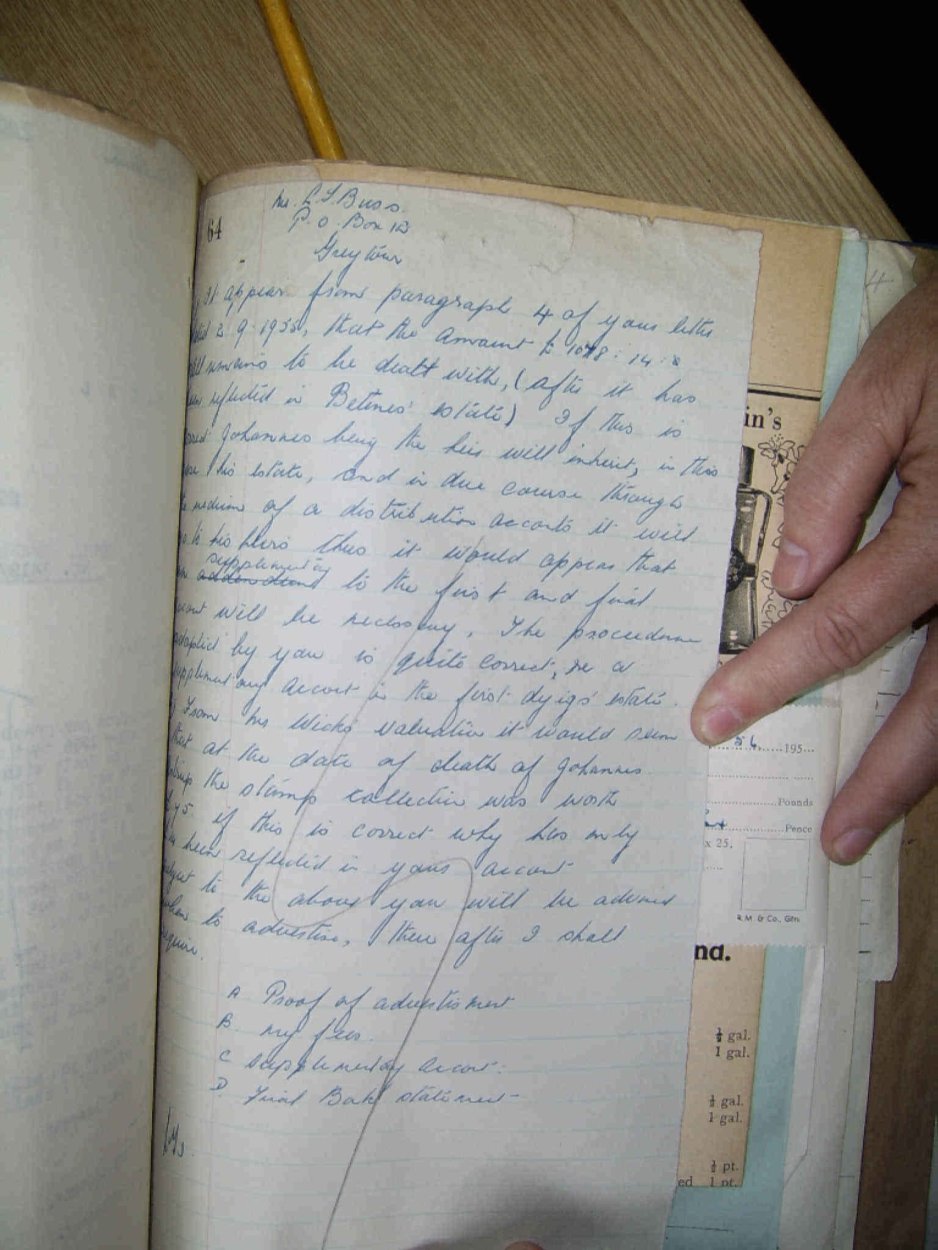 64
Mr. C J Buss.
P. O. Box 12
Greytown
It appears from paragraph 4 of your letter
2.9.1955, that the amount £ 1078 : 14 : 8
remains to be dealt with, (after it has
reflected in Betines' estate) If this is
Johannes being the heir will inherit, in this
his estate, and in due course through
medium of a distribution accounts it will
his heirs thus it would appear that
supplementary
addendum to the first and final
will be necessary. The proceedure
adopted by you is quite correct, ie a
supplementary account in the first dyigs' estate.
From his Wicks valuation it would seem
that at the date of death of Johannes
the stamp collection was worth
if this is correct why has only
been reflected in your account
to the above you will be advised
when to advertise, thereafter I shall
require.
A Proof of advertisement
B. my fees.
C supplementary account.
D. Final Bank statement
in's
54 195
Pounds
Pence
x 25,
R.M & Co., Gtn.
nd.
½ gal.
1 gal.
½ gal.
1 gal.
½ pt.
ed 1 pt.